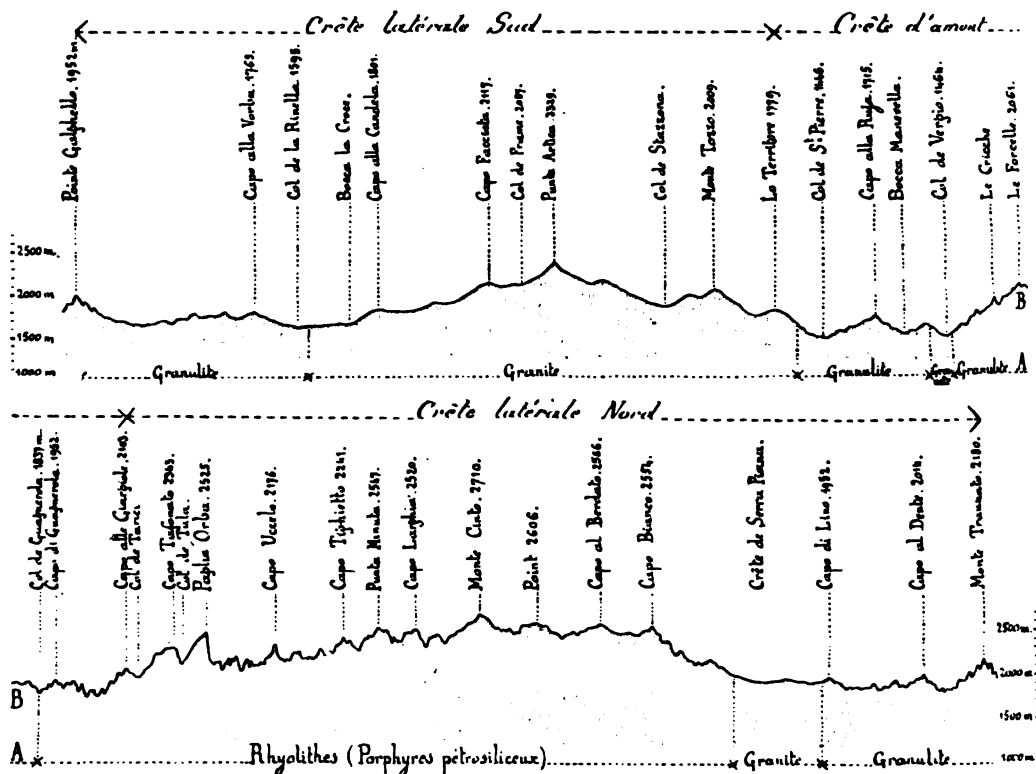 Crête latérale Sud
Crête d'amont
Pointe Galghello. 1952 m
Capo alla Vorba. 1763
Col de la Rinella. 1598.
Bocca La Croce.
Capo alla Candela. 1801.
Capo Facciata. 2117.
Col de
Punta Artica
Col de Stazzona.
Monte Tozzo. 2009.
Lo Terribre. 1779.
Col de St Pierre. 1466.
Capo alla Ruja. 1715.
Bocca
Col de Vergio. 1464.
Le Cricche
Le Forcelle. 2061.
2500 m
2000 m
1500 m
1000 m
B
A
Granulite
Granite
Granulite
Granulite
Crête latérale Nord
Col de Guagnerola. 1837 m
Capo di Guagnerola. 1962.
Capo alle Giarghiole. 2103.
Col de
Capo Tafonato
Col de Tula.
Paglia Orba. 2525.
Capo Uccelo. 2176.
Capo Tighietto. 2241.
Punta Minuta. 2547.
Capo Larghia. 2520.
Monte Cinto. 2710.
Point 2606.
Capo al Berdato. 2566.
Capo Bianco. 2554.
Crête de Serra Piana.
Capo di Lino. 1952.
Capo al Dente. 2014.
Monte Traunato. 2180.
2500 m
2000 m
1500 m
1000 m
B
A
Rhyolithes (Porphyres pétrosiliceux)
Granite
Granulite